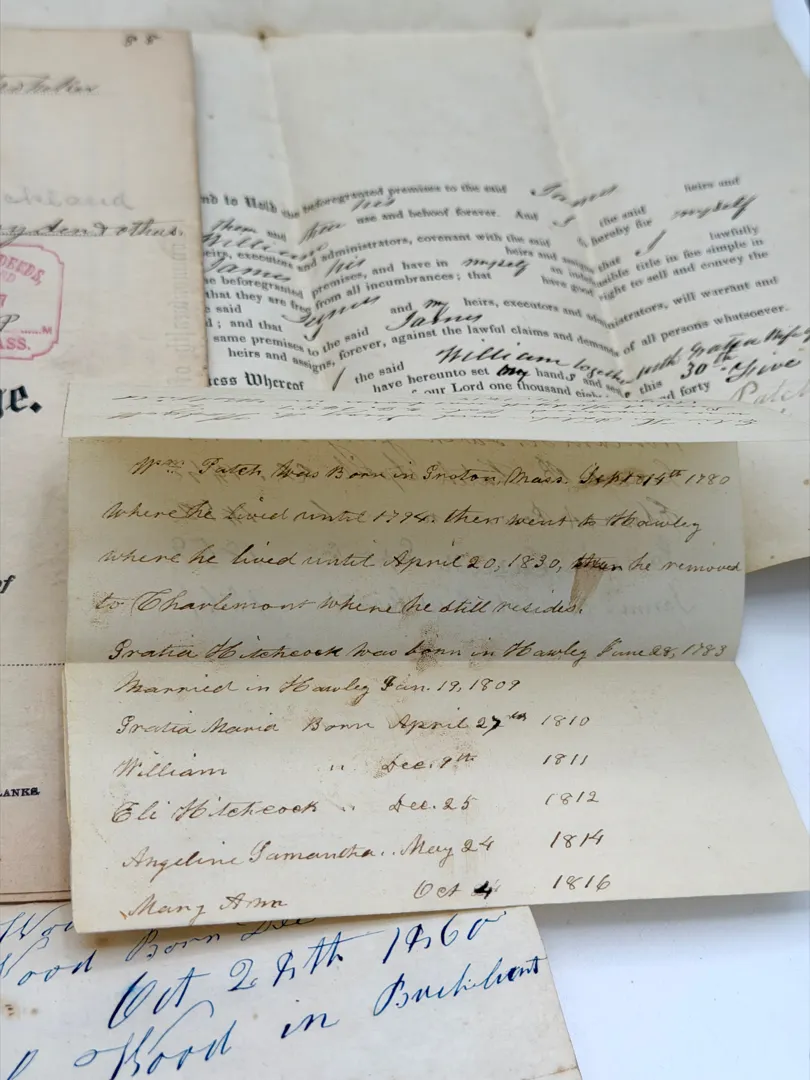 88
nd to Hold the beforegranted premises to the said James heirs and
his use and behoof forever. And I the said
William hereby for myself
heirs, executors and administrators, covenant with the said
James his heirs and that I lawfully
e beforegranted premises, and have in myself an title in fee simple in
that they are free from all incumbrances; that have good right to sell and convey the
e said James
d; and that I and my heirs, executors and administrators, will warrant and
same premises to the said James
heirs and assigns, forever, against the lawful claims and demands of all persons whatsoever.
ess Whereof I the said William together with Gratia
have hereunto set our hands and this 30th
our Lord one thousand and forty Five
DEEDS,
M
ASS.
ge.
of
LANKS.
Wm. Patch Was Born in Groton, Mass. Sept 14th 1780
where he lived until 1794. then went to Hawley
where he lived until April 20, 1830, then he removed
to Charlemont where he still resides.
Gratia Hitchcock was born in Hawley June 28, 1783
Married in Hawley Jan. 19, 1809
Gratia Maria Born April 27th 1810
William " Dec. 9th 1811
Eli Hitchcock " Dec. 25 1812
Angeline Samantha .. May 24 1814
Mary Ann Oct 4 1816
Wood Born Dec
Oct 28th 1860
Wood in Buckland